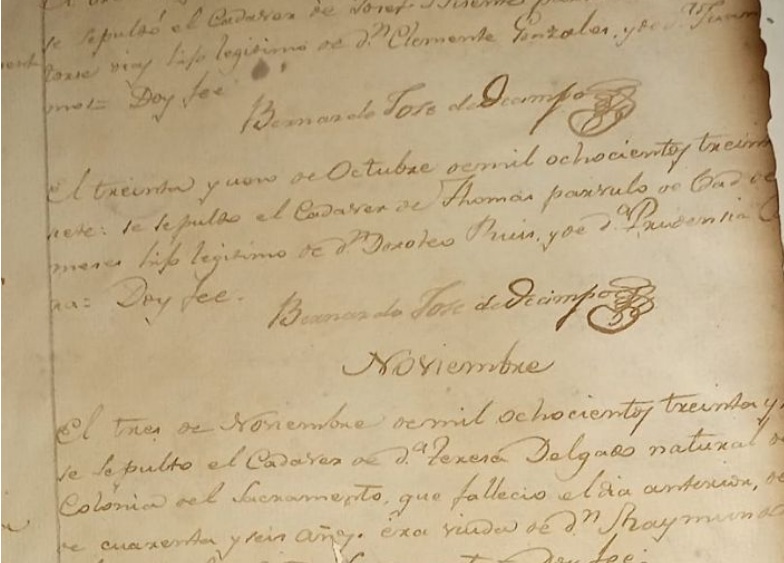 se sepultó el Cadaver de Josef Vicente
torse dias hijo legitimo de d.n Clemente Gonzales, y de d.a
Doy fee.
Bernardo Jose de Ocampo
El treinta y uno de Octubre de mil ochocientos treinta
siete: se sepultó el Cadaver de Thomas parvulo de Edad de
meses hijo legitimo de d.n Doroteo Ruis, y de d.a Prudensia
na= Doy fee.
Bernardo Jose de Ocampo
Noviembre
El tres de Noviembre de mil ochocientos treinta y
se sepultó el Cadaver de d.a Teresa Delgado natural de
Colonia del Sacramento, que fallecio el dia anterior, de
de cuarenta y seis años. era viuda de d.n Raymundo
Doy fee.